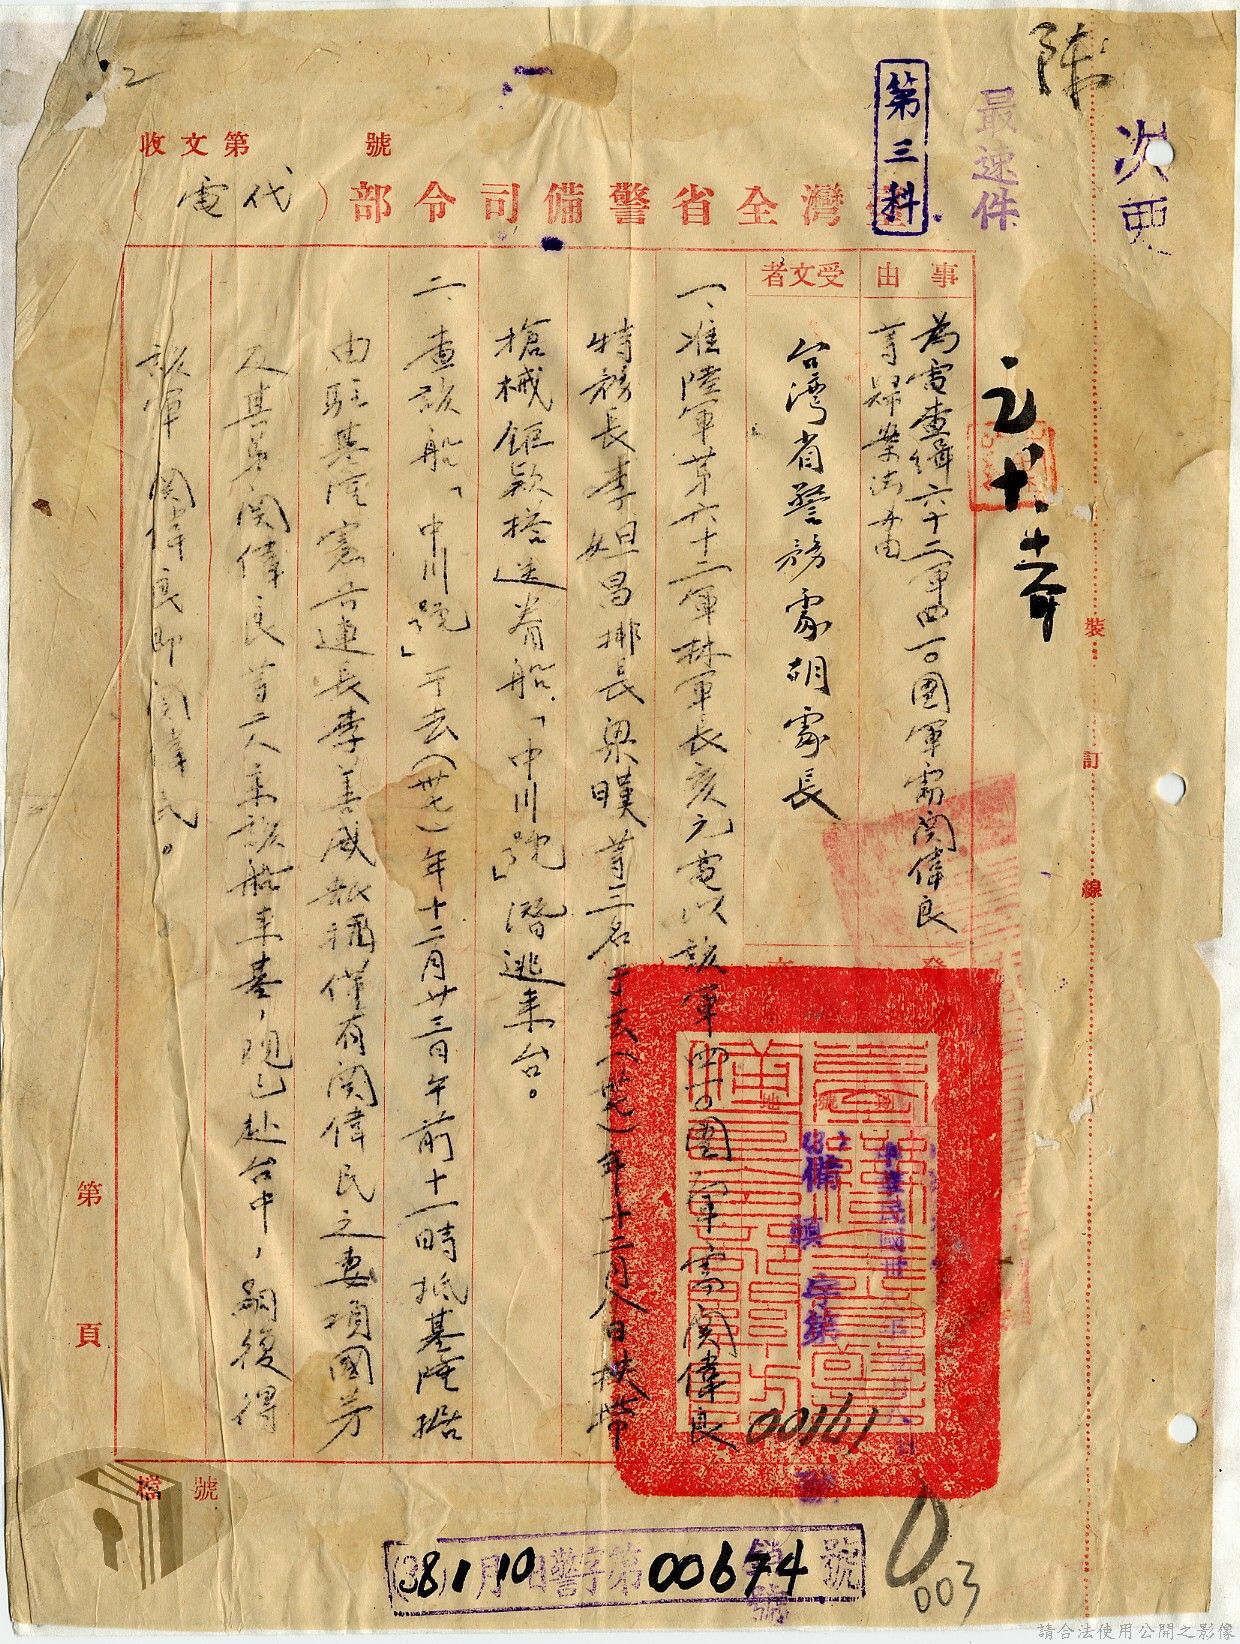 陳
次要
最速件
第三科
收文第 號
灣全省警備司令部(代電)
事由
為電查緝六十二軍四一〇團軍需関偉良
受文者
台灣省警務處胡處長
一、准陸軍第六十二軍林軍長亥元電以該軍四一〇團軍需関偉良
特務長李妲昌排長梁曄等三名于去(卅七)年十二月八日挾帶
槍械鉅款搭送眷船「中川號」潛逃來台。
二、查該船「中川號」于去(卅七)年十二月廿三日午前十一時抵基隆據
由駐基隆憲兵連長李善成報稱僅有関偉民之妻項國芳
及其弟関偉良等二人乘該船來基，現已赴台中，嗣後得
該軍関偉良即関偉民。
裝
訂
線
中華民國卅
備鎮字第
00161
號
第 頁
檔 號
(38)1月10日警字第00674號
003
請合法使用公開之影像